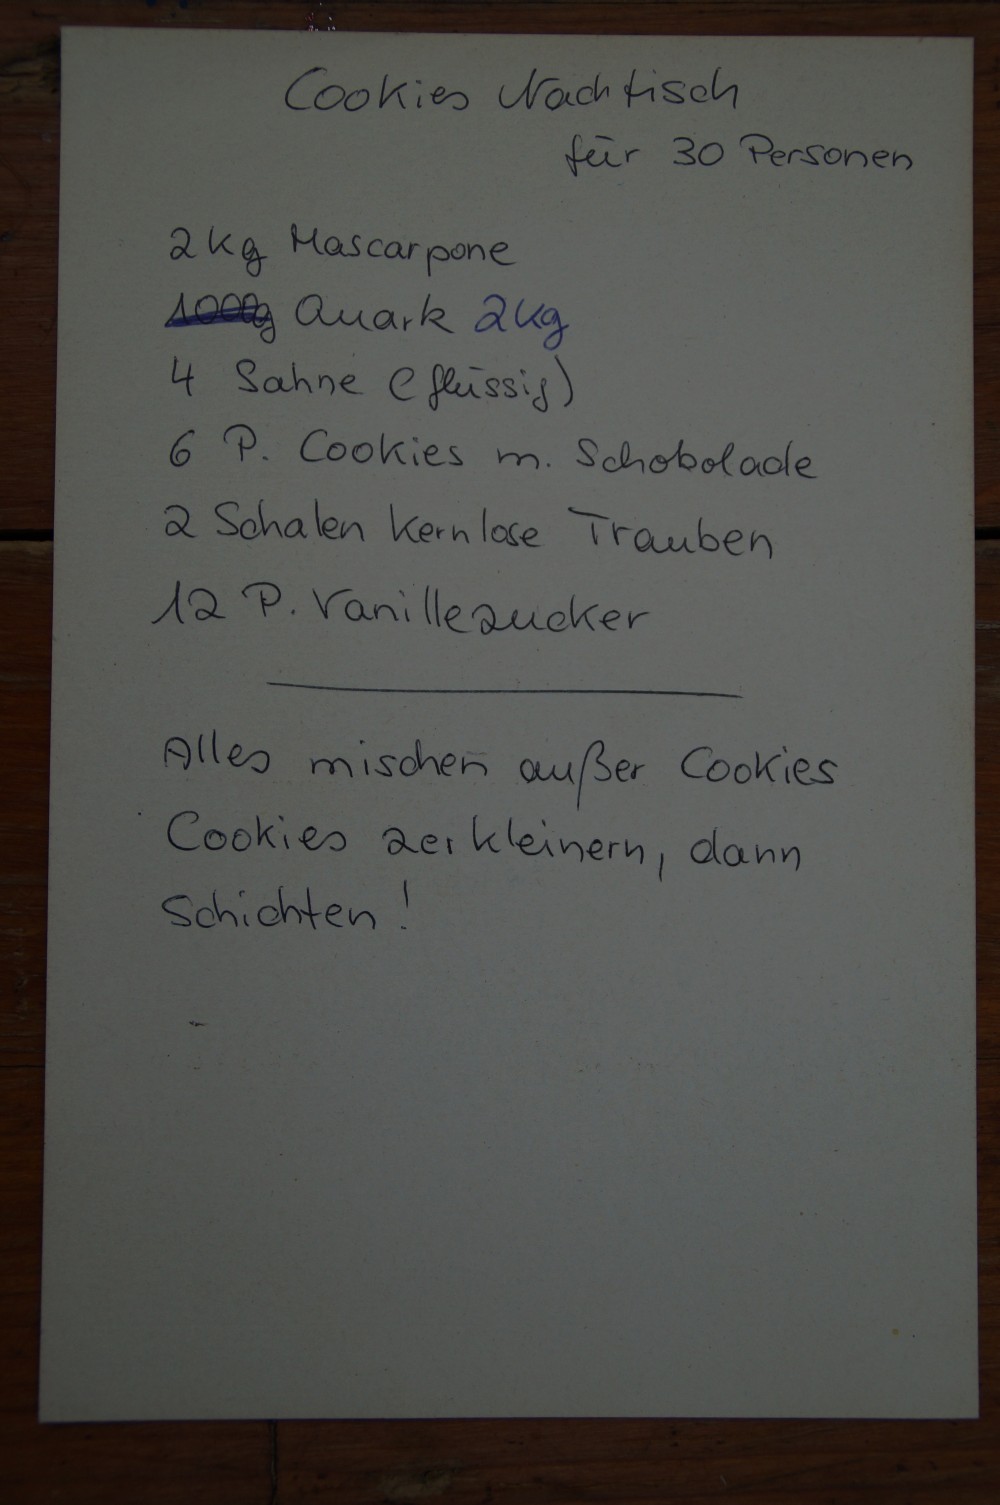 Cookies Nachtisch
für 30 Personen
2 kg Mascarpone
1000g Quark 2 kg
4 Sahne (flüssig)
6 P. Cookies m. Schokolade
2 Schalen kernlose Trauben
12 P. Vanillezucker
Alles mischen außer Cookies
Cookies zerkleinern, dann
schichten!